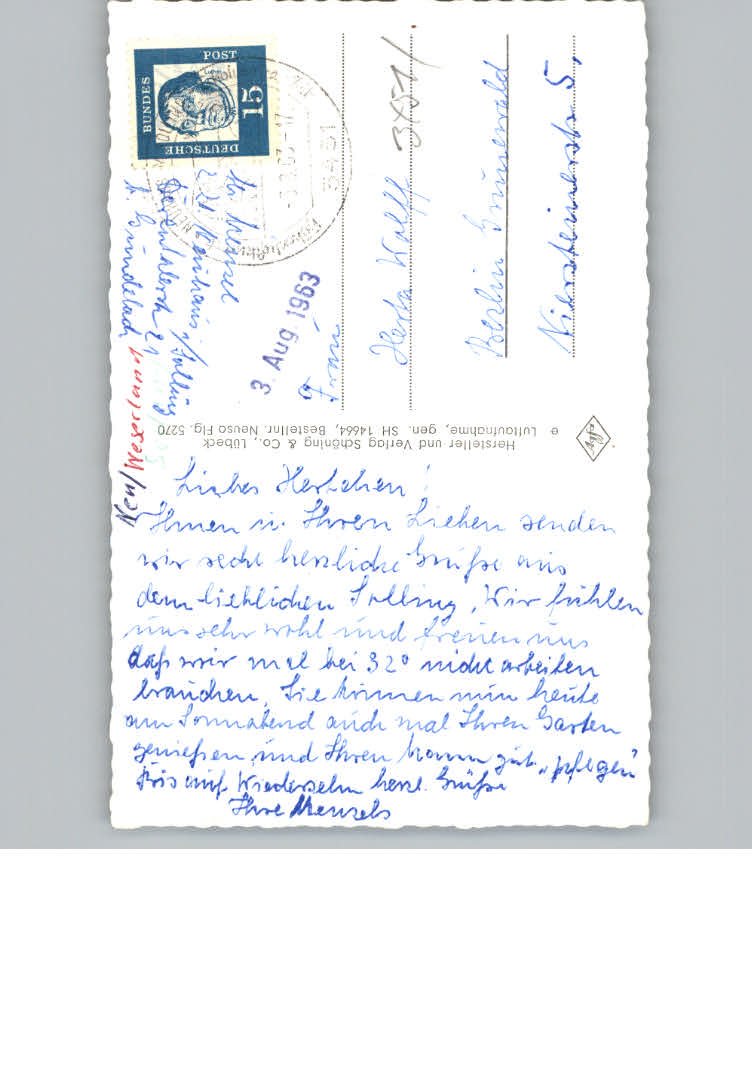 BUNDES
POST
15
DEUTSCHE
3451
3. Aug. 1963
Frau
Herta Wolff
Berlin Grunewald
Niersteinerstr 5,
3451
Neuhaus i/Solling
Neu/Weserland
Hersteller und Verlag Schöning & Co., Lübeck
e Luftaufnahme, gen. SH 14664, Bestellnr. Neuso Flg. 5270
Agfa
Liebes Herbchen!
Ihnen u. Ihren Lieben senden
wir recht herzliche Grüße aus
dem lieblichen Solling, Wir fühlen
uns sehr wohl und freuen uns
daß wir mal bei 32° nicht arbeiten
brauchen, Sie können nun heute
am Sonnabend auch mal Ihren Garten
genießen, und Ihren Mann gut „pflegen"
Bis auf Wiedersehn herzl. Grüße
Ihre Menzels